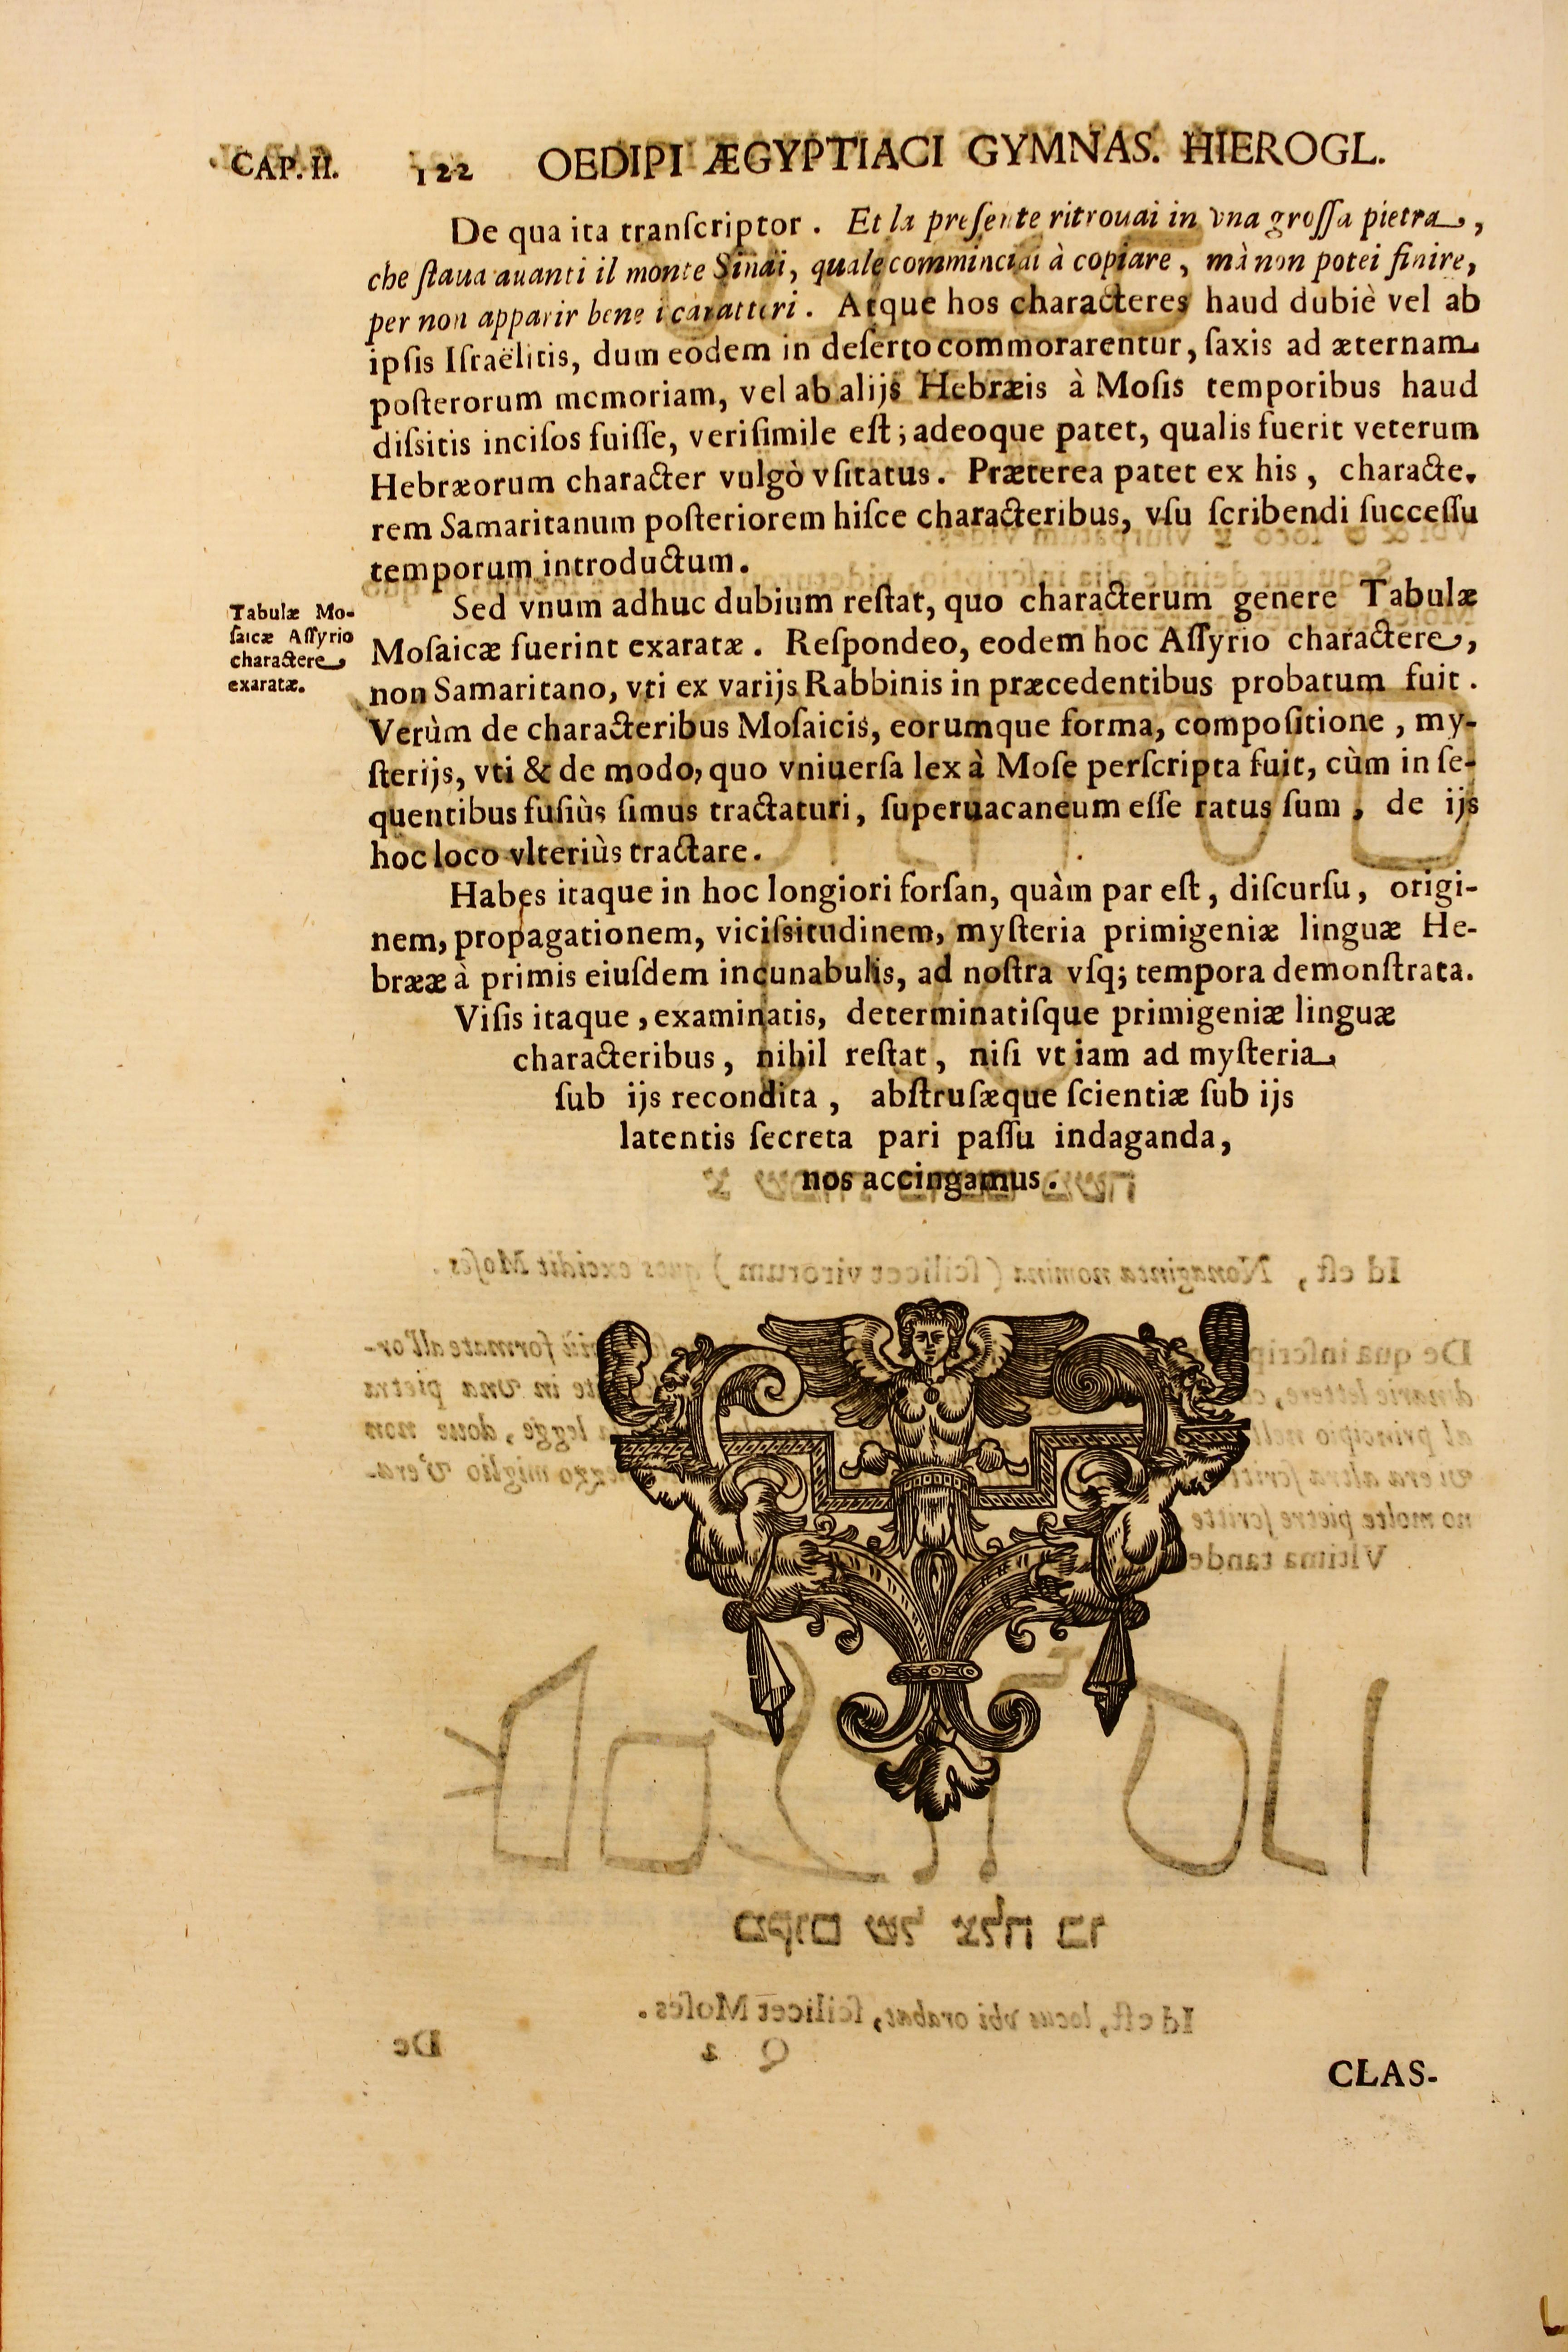 CAP. II. 122 OEDIPI ÆGYPTIACI GYMNAS. HIEROGL.
De qua ita tranſcriptor. Et la preſente ritrouai in vna groſſa pietra,
che ſtaua auanti il monte Sinai, quale comminciai à copiare, mà non potei finire,
per non apparir bene i caratteri. Atque hos characteres haud dubiè vel ab
ipſis Iſraëlitis, dum eodem in deſerto commorarentur, ſaxis ad æternam
poſterorum memoriam, vel ab alijs Hebræis à Moſis temporibus haud
diſsitis inciſos fuiſſe, veriſimile eſt; adeoque patet, qualis fuerit veterum
Hebræorum character vulgò vſitatus. Præterea patet ex his, characte-
rem Samaritanum poſteriorem hiſce characteribus, vſu ſcribendi ſucceſſu
temporum introductum.
Tabulæ Mo-
ſaicæ Aſſyrio
charactere
exaratæ.
Sed vnum adhuc dubium reſtat, quo characterum genere Tabulæ
Moſaicæ fuerint exaratæ. Reſpondeo, eodem hoc Aſſyrio charactere,
non Samaritano, vti ex varijs Rabbinis in præcedentibus probatum fuit.
Verùm de characteribus Moſaicis, eorumque forma, compoſitione, my-
ſterijs, vti & de modo, quo vniuerſa lex à Moſe perſcripta fuit, cùm in ſe-
quentibus fuſiùs ſimus tractaturi, ſuperuacaneum eſſe ratus ſum, de ijs
hoc loco vlteriùs tractare.
Habes itaque in hoc longiori forſan, quàm par eſt, diſcurſu, origi-
nem, propagationem, viciſsitudinem, myſteria primigeniæ linguæ He-
brææ à primis eiuſdem incunabulis, ad noſtra vſq; tempora demonſtrata.
Viſis itaque, examinatis, determinatiſque primigeniæ linguæ
characteribus, nihil reſtat, niſi vt iam ad myſteria
ſub ijs recondita, abſtruſæque ſcientiæ ſub ijs
latentis ſecreta pari paſſu indaganda,
nos accingamus.
CLAS-